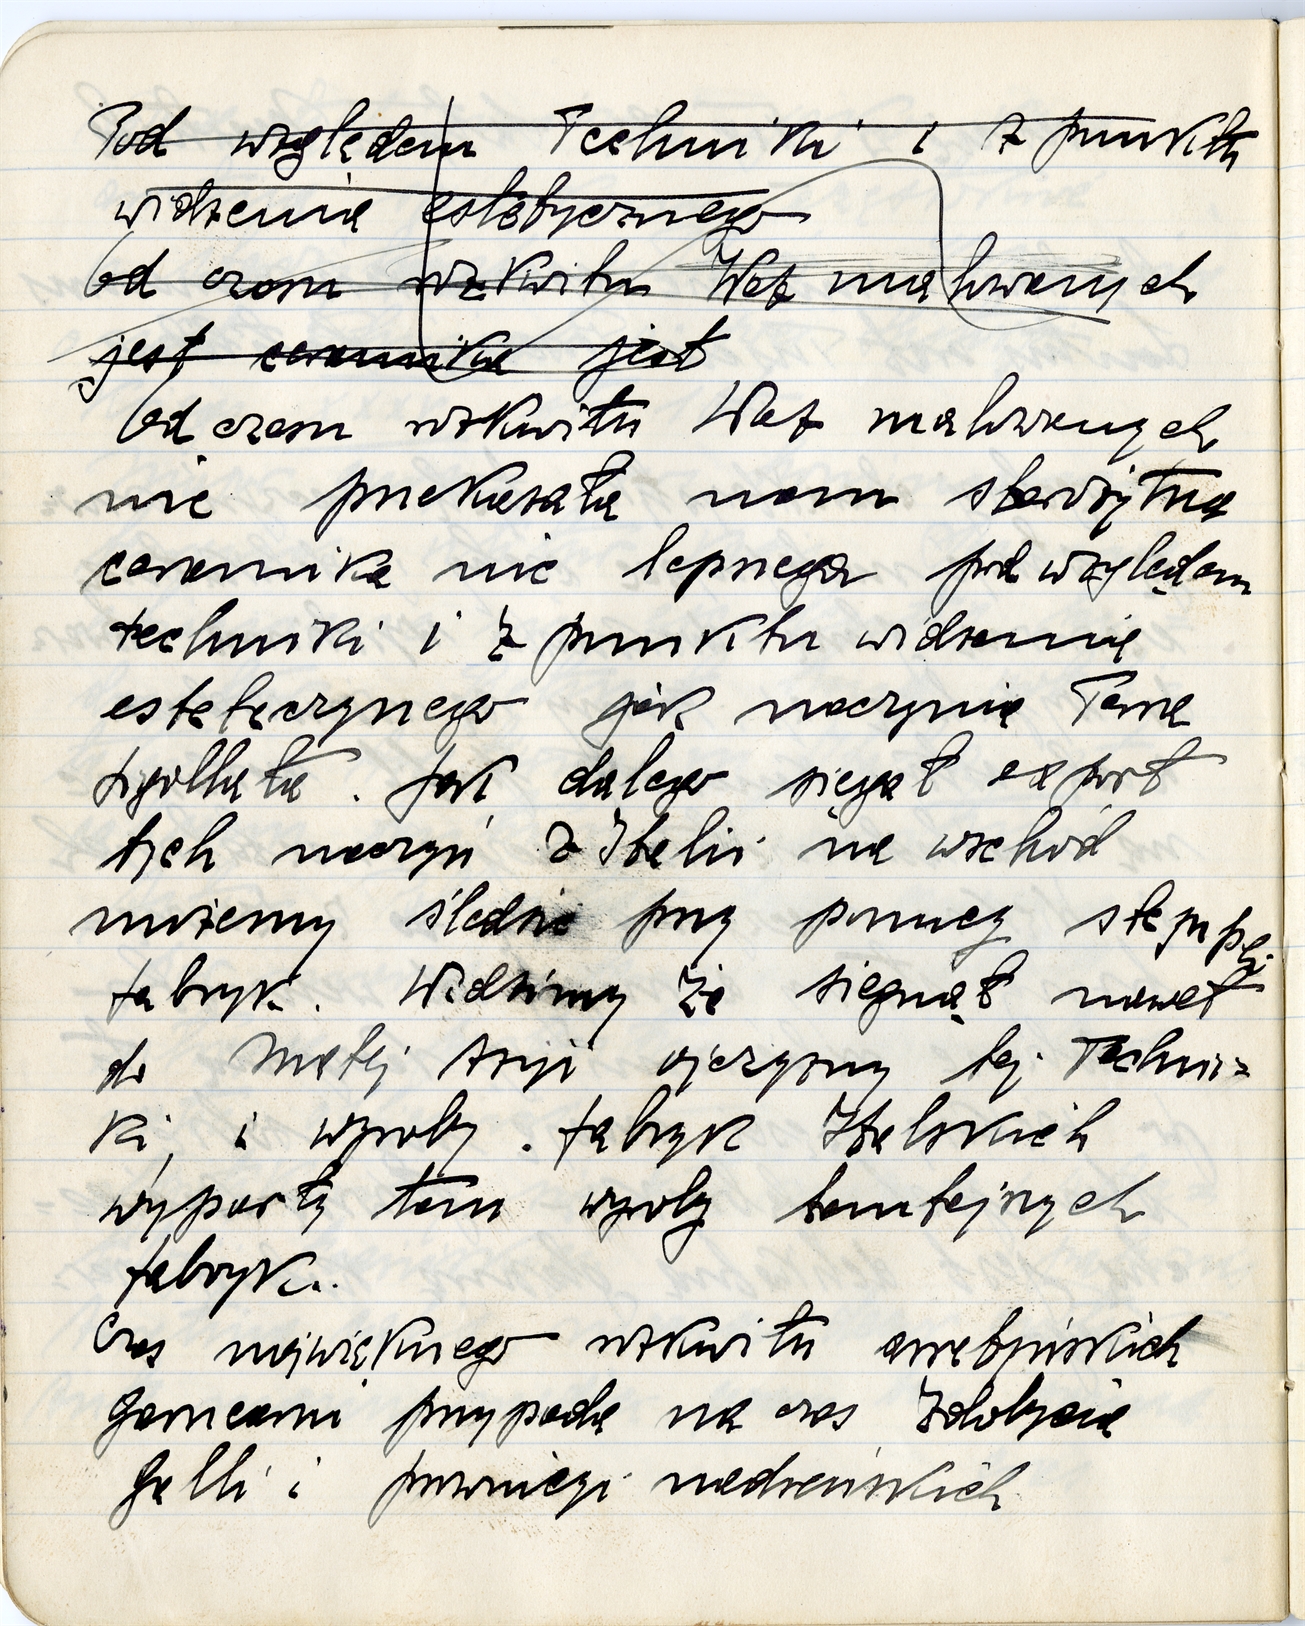 Pod względem Techniki i z punktu
widzenia estetycznego
Od czasu rozkwitu Waz malowanych
jest ceramika jest
Od czasu rozkwitu Waz malowanych
nie przekazała nam starożytna
ceramika nic lepszego pod względem
techniki i z punktu widzenia
estetycznego jak naczynia Terra
sigillata. Jak dalego sięgał export
tych naczyń z Italii na wschód
możemy śledzić przy pomocy stempli
fabryk. Widzimy że sięgnął nawet
do Małej Azyi ojczyzny tej Techni=
ki, i wyroby fabryk Italskich
wyparły tam wyroby tamtejszych
fabryk.
Czas największego rozkwitu arretyńskich
garncarni przypada na czas Zdobycia
Galli i prowincyi nadreńskich